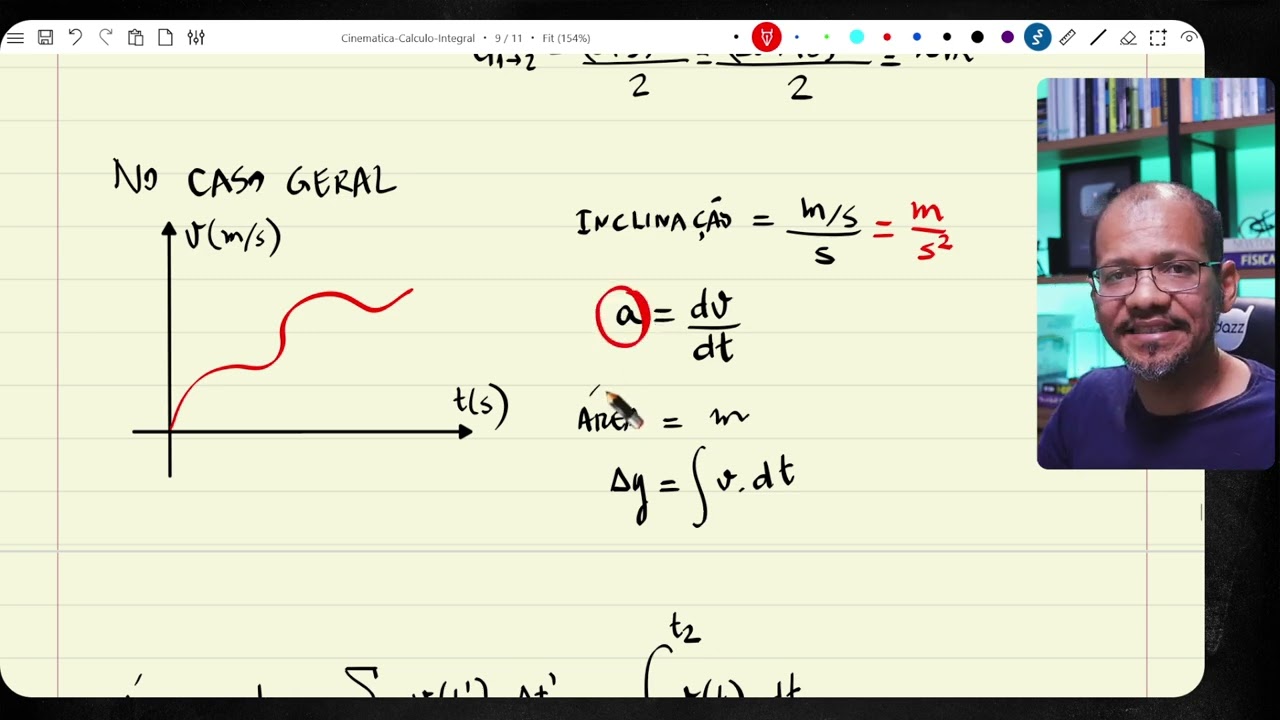 Cinematica-Calculo-Integral • 9 / 11 • Fit (154%)
2 2
NO CASO GERAL
v(m/s)
t(s)
INCLINAÇÃO = m/s / s = m / s²
a = dv / dt
ÁREA = m
Δy = ∫ v. dt
t2
NEWTON
FÍSICA
dazz